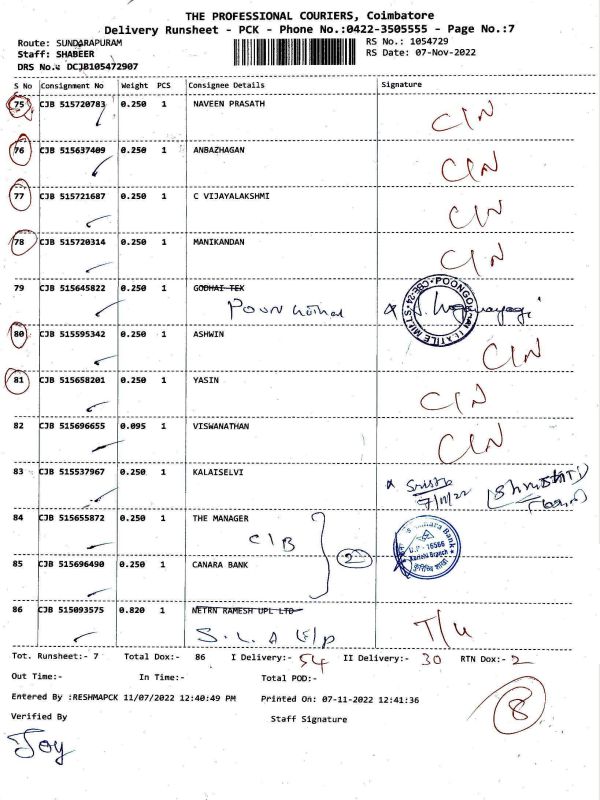 THE PROFESSIONAL COURIERS, Coimbatore
Delivery Runsheet - PCK - Phone No.:0422-3505555 - Page No.:7
Route: SUNDARAPURAM
RS No.: 1054729
Staff: SHABEER
RS Date: 07-Nov-2022
DRS No.: DCJB105472907
S No Consignment No Weight PCS Consignee Details Signature
75 CJB 515720783 0.250 1 NAVEEN PRASATH CIN
76 CJB 515637409 0.250 1 ANBAZHAGAN CIN
77 CJB 515721687 0.250 1 C VIJAYALAKSHMI CIN
78 CJB 515720314 0.250 1 MANIKANDAN CIN
79 CJB 515645822 0.250 1 GODHAI TEX
80 CJB 515595342 0.250 1 ASHWIN CIN
81 CJB 515658201 0.250 1 YASIN CIN
82 CJB 515696655 0.095 1 VISWANATHAN CIN
83 CJB 515537967 0.250 1 KALAISELVI
7/11/22
84 CJB 515655872 0.250 1 THE MANAGER
C/B
2
85 CJB 515696490 0.250 1 CANARA BANK
86 CJB 515093575 0.820 1 NETRN RAMESH UPL LTD T/U
S. L. A
Tot. Runsheet:- 7 Total Dox:- 86 I Delivery:- 54 II Delivery:- 30 RTN Dox:- 2
Out Time:- In Time:- Total POD:-
Entered By :RESHMAPCK 11/07/2022 12:40:49 PM Printed On: 07-11-2022 12:41:36
8
Verified By Staff Signature
Joy